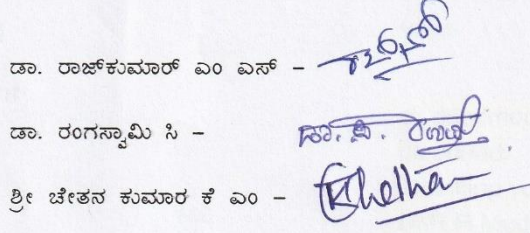 ಡಾ. ರಾಜ್‌ಕುಮಾರ್ ಎಂ ಎಸ್ –
ಡಾ. ರಂಗಸ್ವಾಮಿ ಸಿ – ಡಾ. ಸಿ.
ಶ್ರೀ ಚೇತನ ಕುಮಾರ ಕೆ ಎಂ –